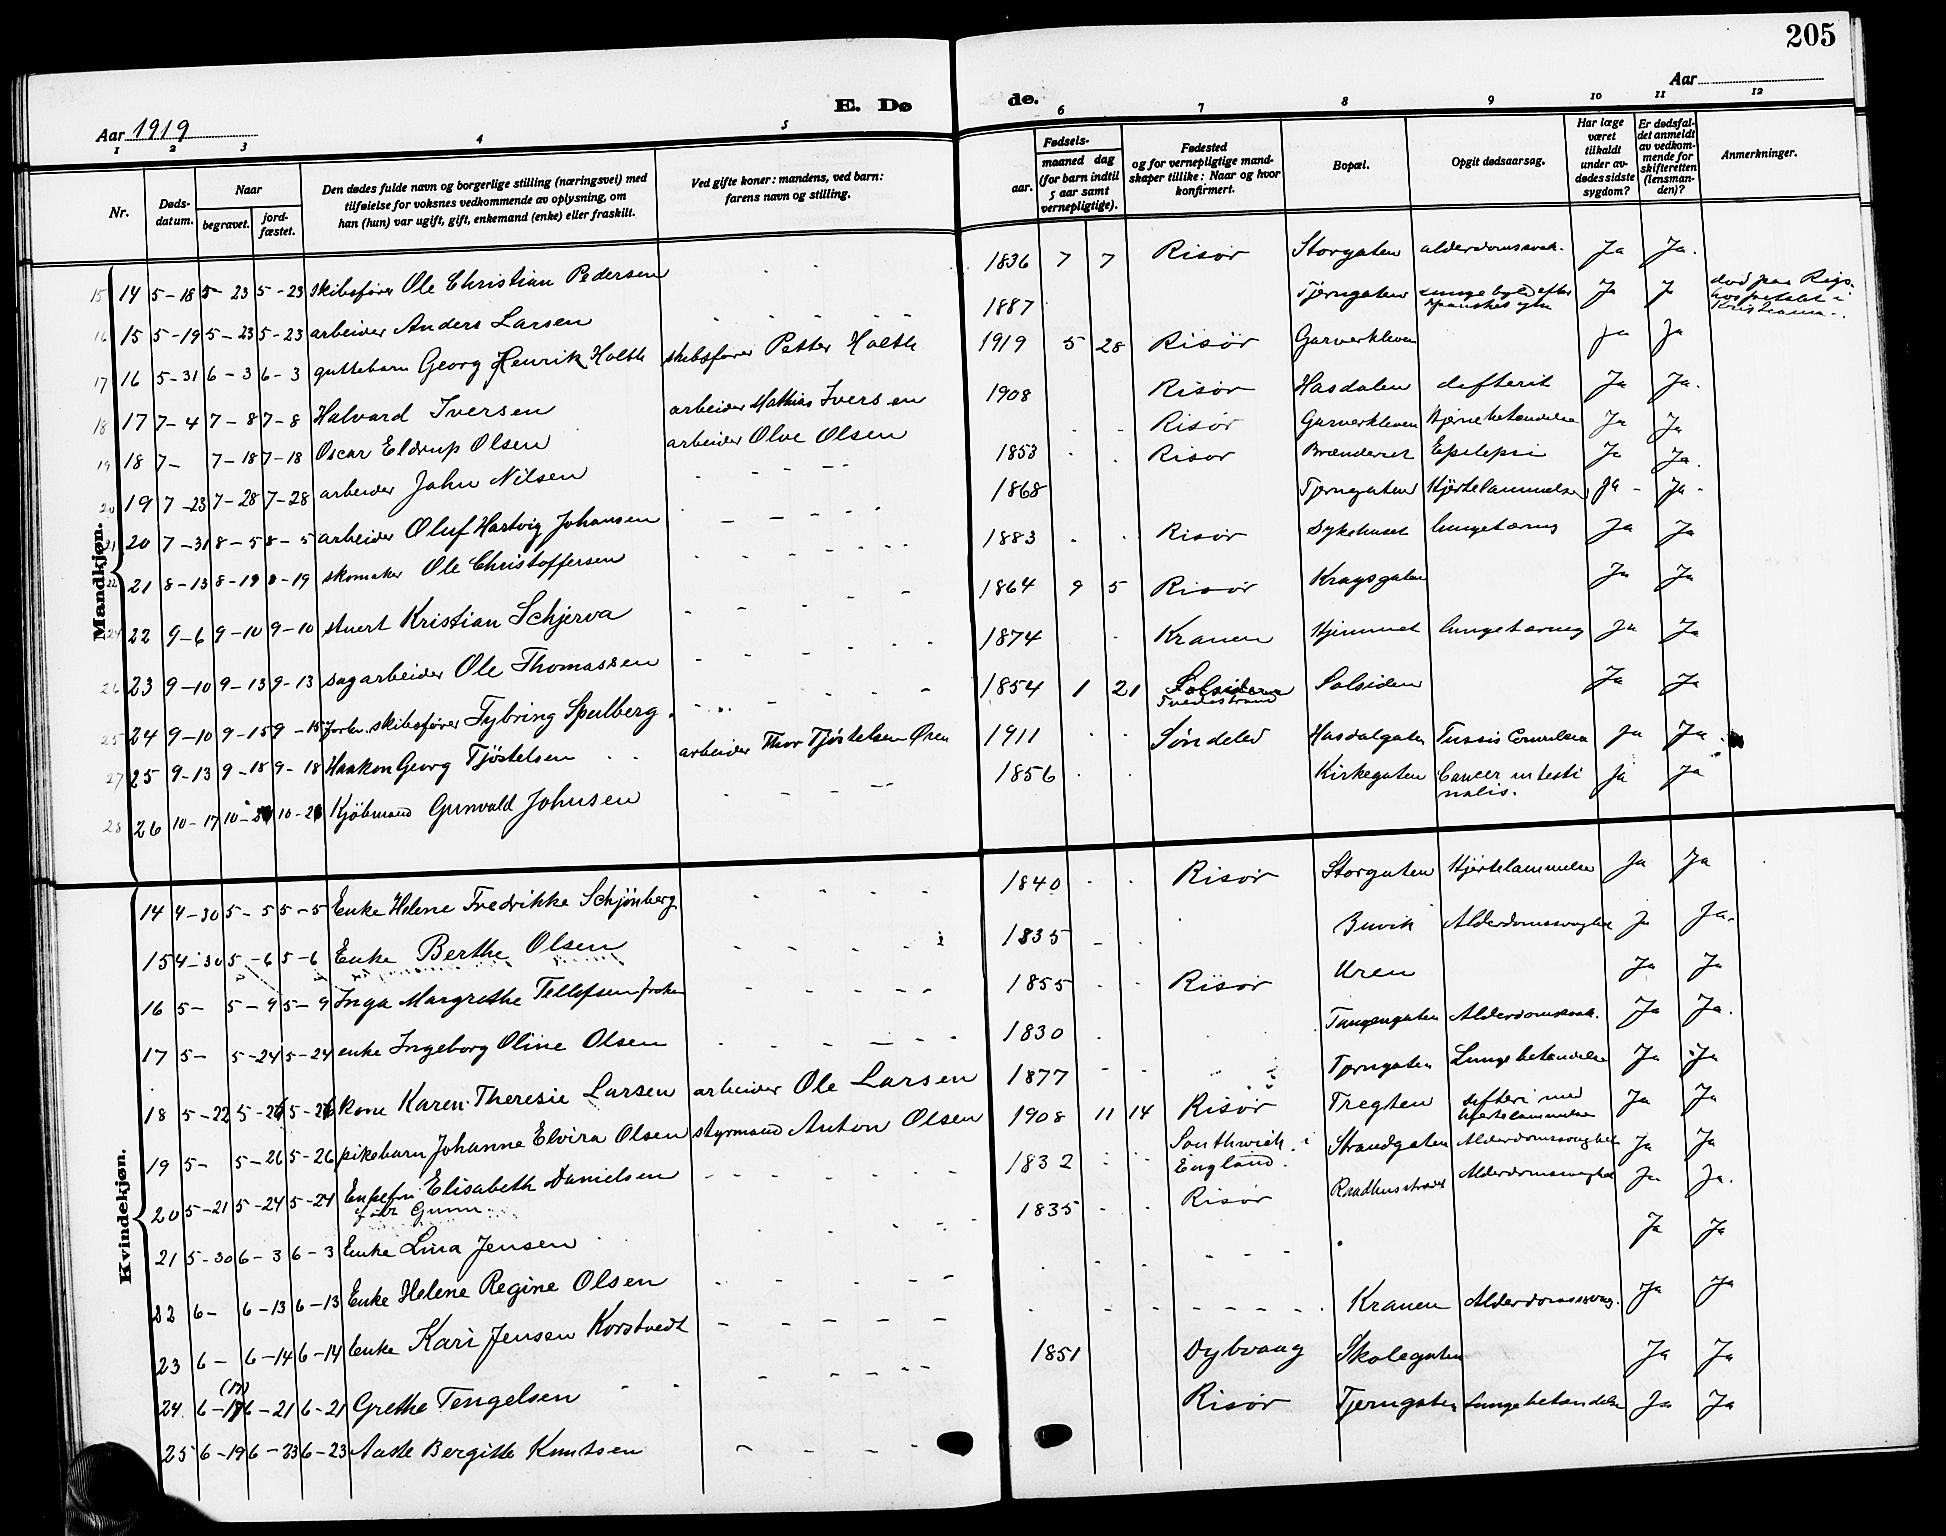 205
Aar 1919
E. Dø
de.
Aar
1 2 3 4 5 6 7 8 9 10 11 12
Nr.
Døds-
datum.
Naar
begravet.
jord-
fæstet.
Den dødes fulde navn og borgerlige stilling (næringsvei) med
tilføielse for voksnes vedkommende av oplysning, om
han (hun) var ugift, gift, enkemand (enke) eller fraskilt.
Ved gifte koner: mandens, ved barn:
farens navn og stilling.
Fødsels-
aar.
maaned dag
(for barn indtil
5 aar samt
vernepligtige).
Fødested
og for vernepligtige mand-
skaper tillike: Naar og hvor
konfirmert.
Bopæl.
Opgit dødsaarsag.
Har læge
været
tilkaldt
under av-
dødes sidste
sygdom?
Er dødsfal-
det anmeldt
av vedkom-
mende for
skifteretten
(lensman-
den)?
Anmerkninger.
Mandkjøn.
15 14 5-18 5-23 5-23 skibsfører Ole Christian Pedersen 1836 7 7 Risør Storgaten alderdomssvak. Ja Ja.
16 15 5-19 5-23 5-23 arbeider Anders Larsen 1887 Tjerngaten Ja J død paa Rigs-
hospitalet i
Kristiania.
17 16 5-31 6-3 6-3 guttebarn Georg Henrik Holth skibsfører Petter Holth 1919 5 28 Risør Garverkleven Ja Ja
18 17 7-4 7-8 7-8 Halvard Iversen arbeider Mathias Iversen 1908 Risør Hasdalen defterit Ja Ja.
19 18 7- 7-18 7-18 Oscar Eldrup Olsen arbeider Olve Olsen Risør Garverkleven Hjernebetændelse Ja Ja
20 19 7-23 7-28 7-28 arbeider John Nilsen 1853 Risør Brænderiet Epilepsi Ja Ja.
21 20 7-31 8-5 8-5 arbeider Oluf Hartvig Johansen 1868 Tjerngaten Hjertelammelse Ja - Ja -
22 21 8-13 8-19 8-19 skomaker Ole Christoffersen 1883 Risør Sykehuset lungetæring Ja Ja
24 22 9-6 9-10 9-10 stuert Kristian Schjerva 1864 9 5 Risør Kragsgaten Ja Ja
26 23 9-10 9-13 9-13 sagarbeider Ole Thomassen 1874 Kranen Hjemmet lungetæring Ja Ja
25 24 9-10 9-15 9-15 forhv. skibsfører Tybring Spulberg. 1854 1 21 Solsiden
Tvedestrand Solsiden Ja Ja
27 25 9-13 9-18 9-18 Haakon Georg Tjøstelsen arbeider Thor Tjøstelsen Øren 1911 Søndeled Hasdalgaten Tussis Convulsiva Ja Ja
28 26 10-17 10- 10- Kjøbmand Gunvald Johnsen 1856 Kirkegaten Cancer intesti
nalis. Ja Ja
Kvindekjøn.
14 4-30 5-5 5-5 Enke Helene Fredrikke Schjønberg 1840 Risør Storgaten Hjertelammelse Ja Ja
15 4-30 5-6 5-6 Enke Berthe Olsen 1835 Buvik Alderdomssvaghed Ja Ja.
16 5- 5-9 5-9 Inga Margrethe Tellefsen frøken 1855 Risør Uren Ja Ja
17 5- 5-24 5-24 enke Ingeborg Oline Olsen 1830 Tangengaten Alderdomssvak. Ja Ja.
18 5-22 5-26 5-26 kone Karen Theresie Larsen arbeider Ole Larsen 1877 Tjerngaten Lungebetændelse Ja Ja
19 5- 5-26 5-26 pikebarn Johanne Elvira Olsen styrmand Anton Olsen 1908 11 14 Risør Tregten difteri med
hjertelammelse Ja Ja
20 5-21 5-24 5-24 Enkefru Elisabeth Danielsen
født Gunn 1832 Southwich i
England. Strandgaten Alderdomssvaghed Ja Ja
21 5-30 6-3 6-3 Enke Lina Jensen 1835 Risør Raadhusstrædet Alderdomssvaghed Ja Ja.
22 6- 6-13 6-13 Enke Helene Regine Olsen Ja Ja
23 6- 6-14 6-14 Enke Kari Jensen Korstvedt Kranen Alderdomssvag. Ja Ja
(17)
24 6-17 6-21 6-21 Grethe Tengelsen 1851 Dybvaag Skolegaten Ja Ja
25 6-19 6-23 6-23 Aaste Bergitte Knutsen Risør Tjerngaten Lungebetændelse Ja Ja